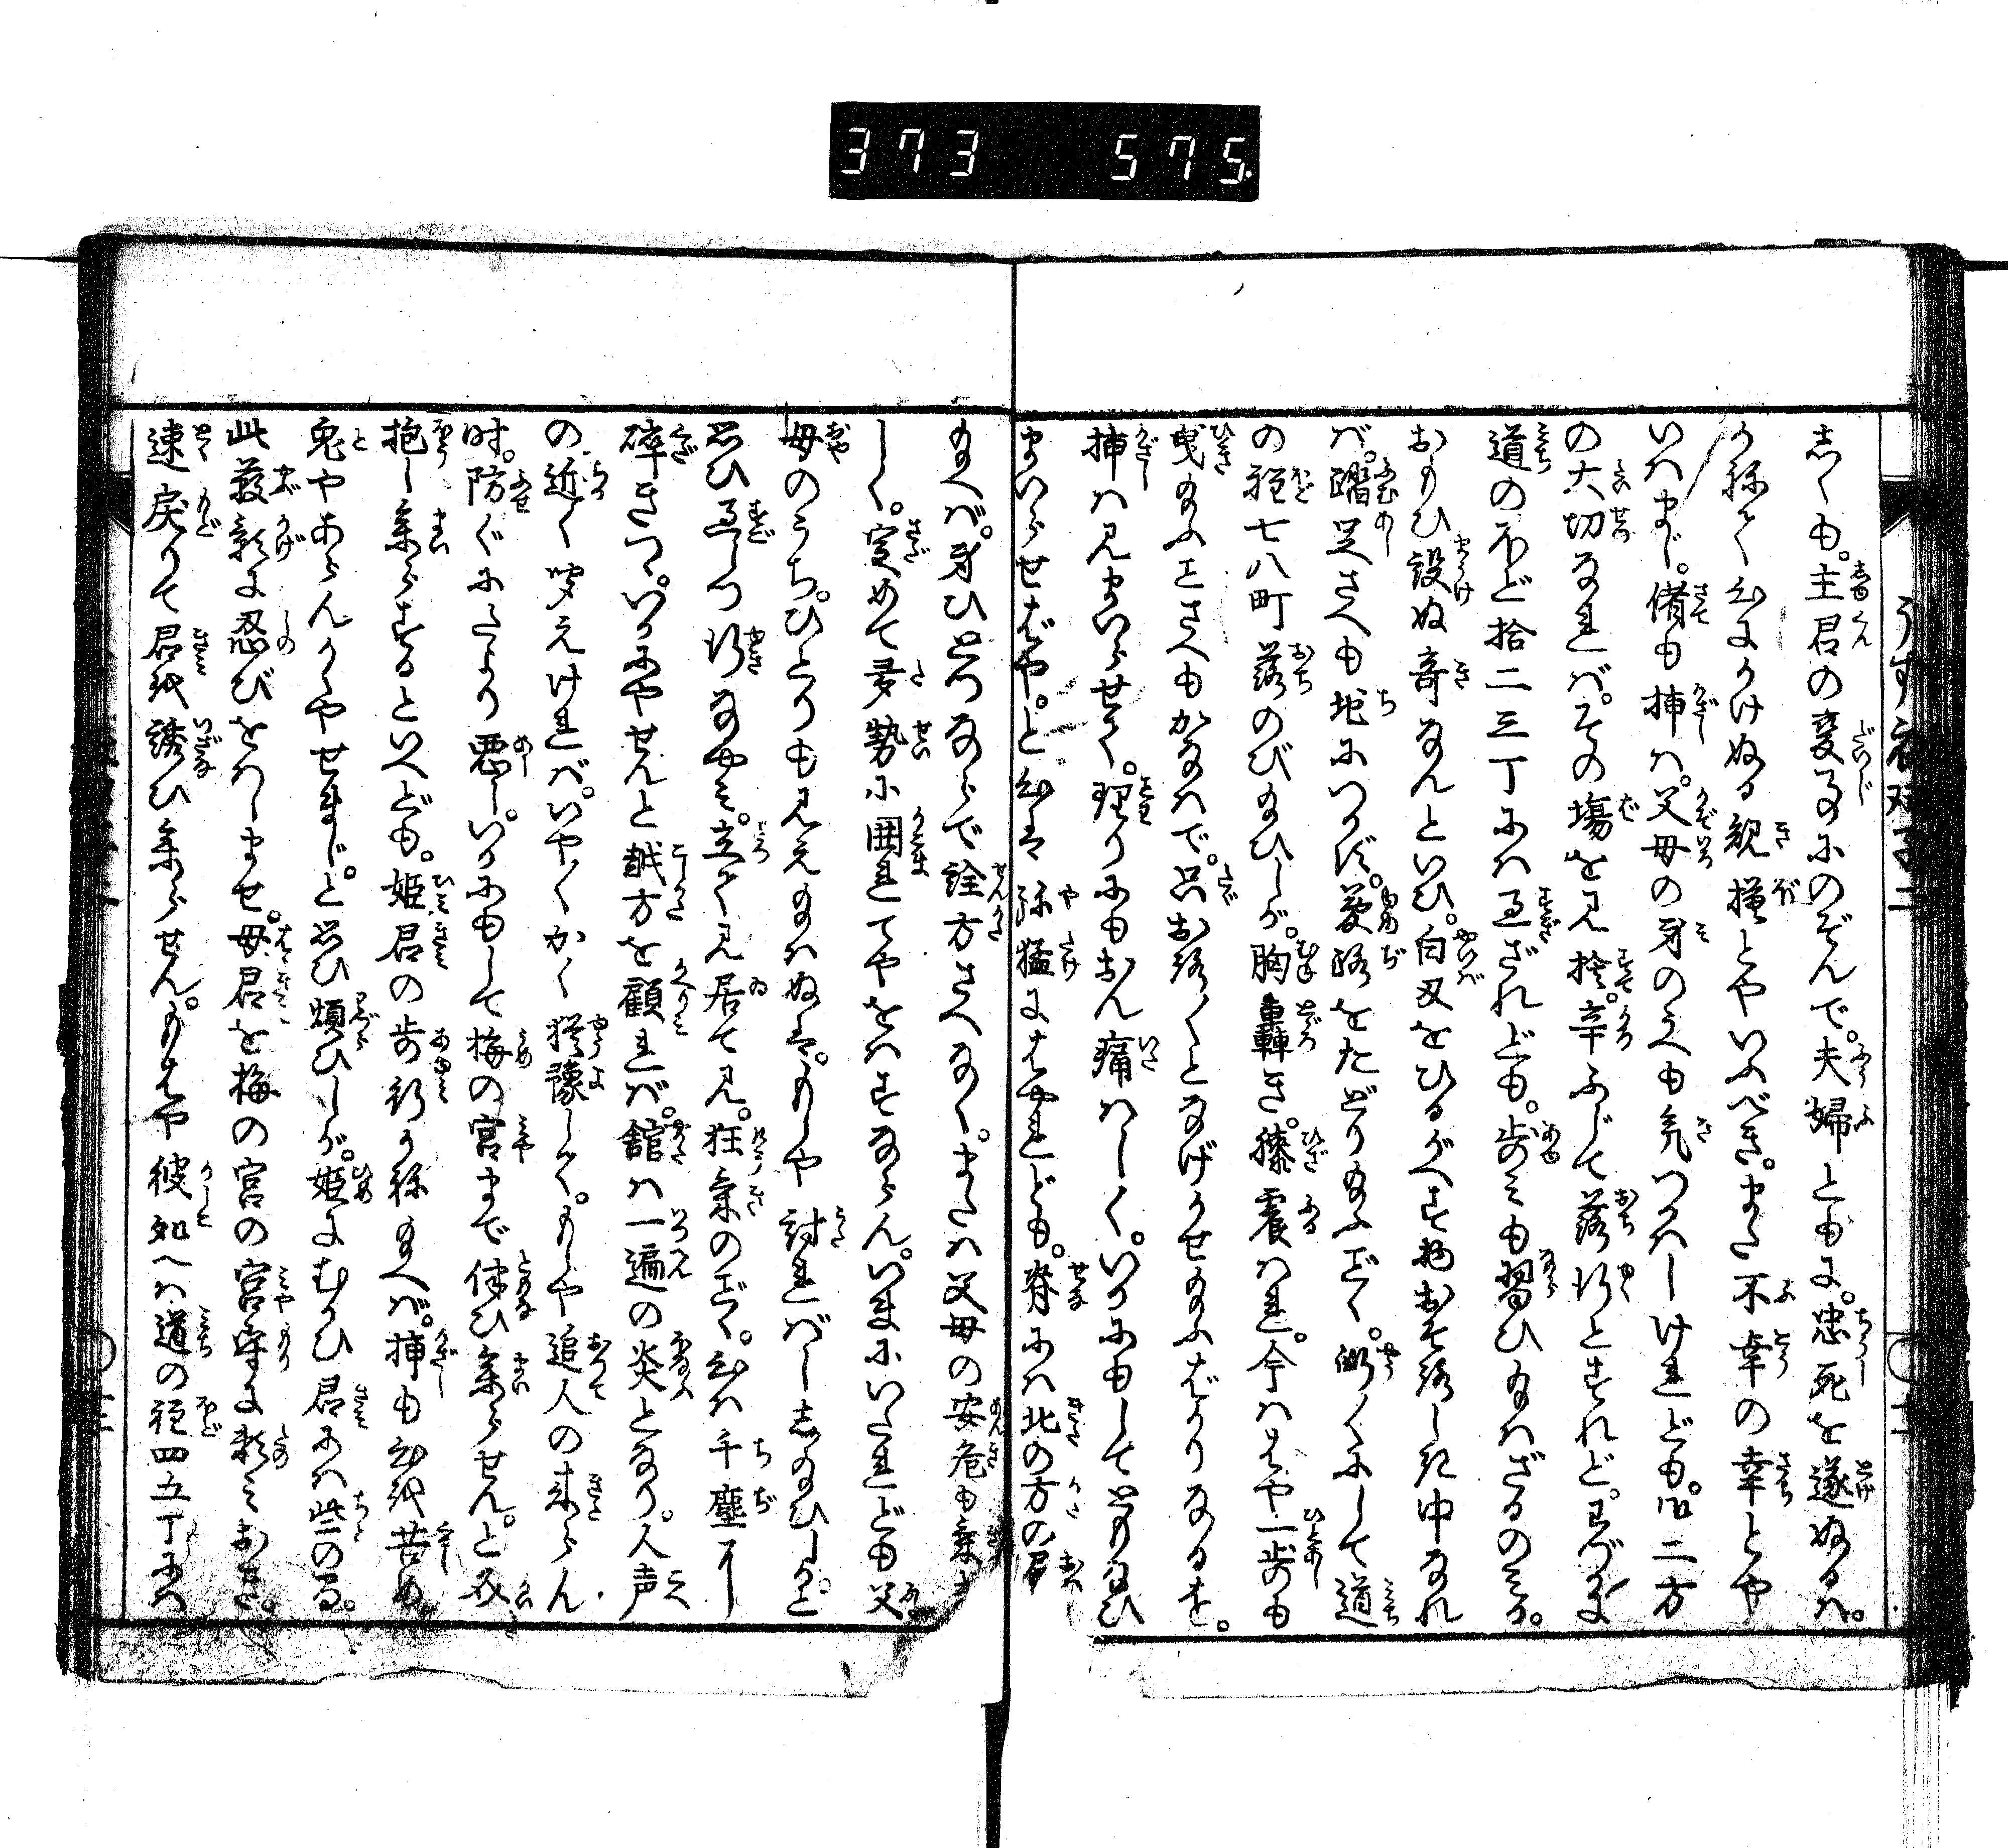 373 575.
しくも。主君の変事にのぞんで。夫婦ともに。忠死を遂ぬるハ。
かねて心にかけぬる規模とやいふべき。また不幸の幸とや
いハまし。偖も挿ハ。父母の身のうへも気つかハしけれども。御二方
の大切なれバ。その場を見捨。辛ふじて落行とすれど。わづかに
道のほど拾二三丁にハ過ざれども。歩ミも習ひ給ハざるのミか。
おもひ設ぬ奇なんといひ。白刃をひるがへす物おそろしき中なれ
バ。躍足さへも地につかず。夢路をたどり給ふごとく。漸くにして道
の程七八町落のび給ひしが。胸轟き。膝震ハれ。今ハはや一歩も
曳給ふことさへもかなハで。只おろ〳〵となげかせ給ふばかりなるを。
挿ハ見まいらせて。理りにもおん痛ハしく。いかにもしてともなひ
まいらせばや。と心は弥猛にはやれども。脊にハ北の方の
給へバ。身ひとつならで詮方さへなく。またハ父母の安危も
しく。定めて多勢に囲れてやをハすならん。いまにいたれども父
母のうち。ひとりも見え給ハぬは。もしや討れバし志給ひしかと
思ひ過しつ行なやミ。立て見居て見。狂気のごとく。心ハ千塵に
碎きつゝ。いかにやせんと越方を顧れバ。舘ハ一遍の炎となり。人声
の近く聞えけれバ。いや〳〵かく猶豫して。もしや追人の来らん
時。防ぐにたより悪し。いかにもして梅の宮まで伴ひ参らせん。と
抱し参らするといへども。姫君の歩行かね給へバ。挿も心を苦め
兎やあらんかくやせまじ。と思ひ煩ひしが。姫にむかひ君にハ些の間。
此薮影に忍びをハしませ。母君を梅の宮の宮守に頼ミおき。
速戻りて君を誘ひ参らせん。もはや彼処へハ道の程四五丁にハ